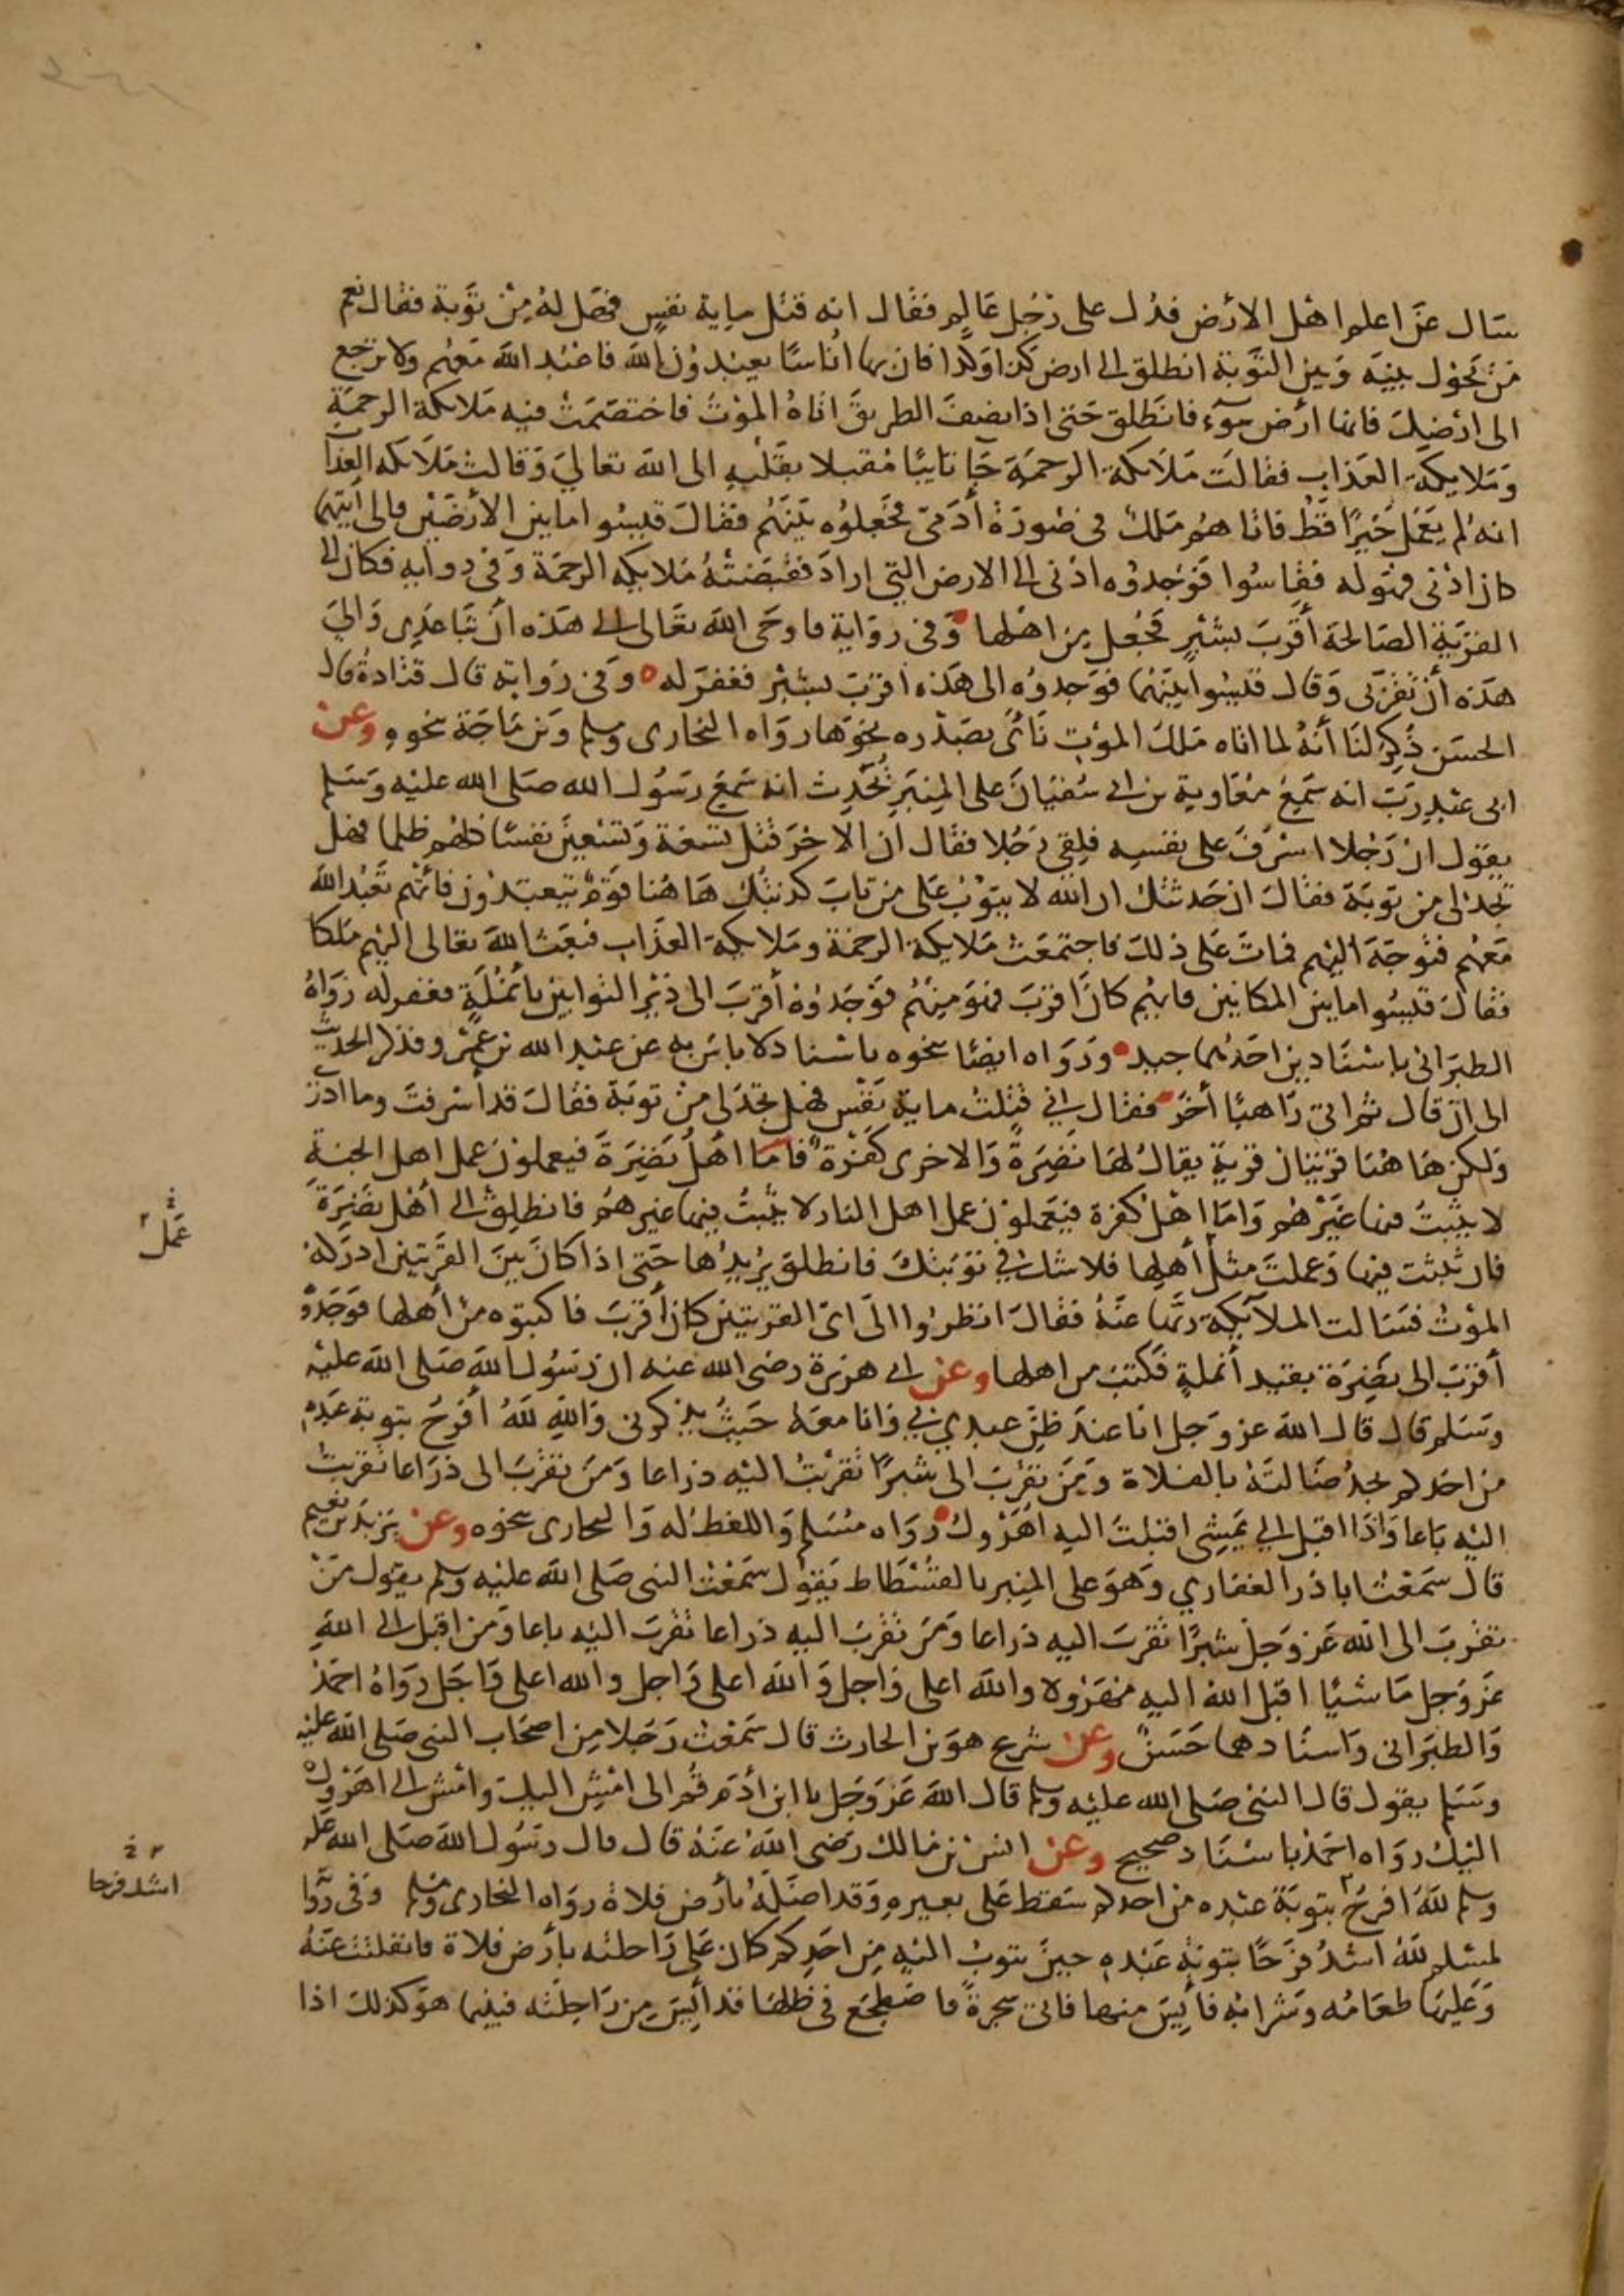 سَال عَن اعلم اهْل الارْض فدُل على رَجُل عَالِم فقال انه قتَل ماية نفسٍ فهَل لهُ مِنْ توَبة فقال نعم
مَنْ يَحُول بينَه وَبين التوَّبة انطلق الى ارض كذا وكذا فان بها اُناسًا يعبْدوُن الله فاعبُد اللهَ مَعهُم ولا ترجع
الى ارْضِكَ فانها ارْض سوْء فانطَلق حَتى اذا نصَفَ الطريقَ اتاهُ الموْتُ فاختصَمَتْ فيه مَلايكة الرحمَةِ
وَمَلايكَة العَذاب فقالتَ مَلايكة الرحمَة جَا تايبًا مُقبلا بقَلْبهِ الى الله تعالىَ وَقالتْ مَلايكه العذاب
انهُ لم يَعَمل خَيرًا قطْ فاتاهمُ مَلكٌ في صُورَة أدَميّ فجَعلوُه بَينَهُم فقالَ قيسُوا ما بين الأرْضَيْن فالى أيتهما
كان ادْنى فهوله فقاسُوا فوَجَدوُه ادْنى الى الارض التي ارادَ فقبَضَتْهُ مَلايكة الرحَمة وَفي رواية فكان الى
القرَيةِ الصَالحة أقربَ بشْبرٍ فجُعل مِن اهْلها وَفي روَاية فاوحَى اللهَ تعَالى الى هَذه أن تَبَاعَدِي وَالىَ
هَذه أنْ تقرَّبي وَقال قيسُوا بيَنهُما فوَجدوُه الى هَذه اقرَبَ بشبْر فغفرَ له وَفي رَواية قال قتادةُ قال
الحسَن ذُكِر لنَا أنهُ لما اتاه مَلكُ الموْت نَأىَ بصَدْره نحْوَها روَاه البخارى ومسلم وَبن مَاجَة نحوه وعن
ابى عَبْدِرَبّ انه سَمِعَ مُعَاوية بن ابى سُفيَانَ على المِنبَرِ يُحَدّثِ انه سَمعَ رَسُول الله صَلى الله عليْه وَسَلم
يقوَل انْ رَجُلا اسْرفَ على نفسِه فلِقىَ رَجُلا فقال ان الاخِرَ قتلَ تسْعَة وَتسْعِينَ نفسًا كلهُم ظلما فهَل
تجد لى من توَبَة فقالَ ان حَدثتكَ ان الله لا يتوُبْ عَلى من تابَ كذبتكَ هَا هُنا قوَمٌ يتعبَدوُن فأتهم تعَبُد اللهَ
مَعهُم فتوَجَهَ اليهُم فماتَ عَلى ذلكَ فاجتمعَتْ مَلايكة الرحمْة ومَلايكة العذَاب فبعَثَ اللهَ تعالى اليهُم مَلكا
فقالَ قيسُوا ما بين المكانين فايهُم كانَ اقرَبَ فهوَ مِنهُم فوَجَدوُهْ أقربَ الى دَيْر التوابينَ بأنمُلَةٍ فغفر له رَوَاهُ
الطبَرانى باسْنَادين احَدُهما جيد ورَوَاه ايضًا نحوه باسْناد لا باسَ به عن عَبْد الله بن عَمرْ وفذكر الحديث
الى ان قال ثم اتى رَاهبًا أخَرَ فقال انى قتلتُ مايةَ نَفْسٍ فهل تجدَ لى منْ توَبة فقالَ قد أسْرفتَ وما ادرْى
وَلكن هَا هُنا قرْيتان قريَة يقالُ لهَا نَضِرَةٌ وَالاخرى كَفرْةٌ فامّا اهْلُ نَضِرَةَ فيَعملونَ عمل اهل الجنةِ
لا يثبتُ فيها غيَرْهُم وَامّا اهْل كفرة فيَعْملوُن عمل اهل النار لا يثبتُ فيها غيرهمُ فانطلِقْ الى اهْل نَضِرَةَ
فان ثبَتَّ فيها وَعملتَ مثلَ أهلِها فلا شَك في توَبتكَ فانطلقَ يُريدُها حَتى اذا كانَ بيَن القرَيتين ادرَكهُ
الموْتُ فسَالت الملآيكة رَبهَّا عَنْهُ فقالَ انظرُوا الىَ اىّ القريتين كان أقربَ فاكتبوُه منْ أهلها فوَجَدوُ
أقربَ الى نَضِرَة بقِيد أنملةٍ فكُتبَ من اهلها وعن ابى هريرة رضى الله عنه ان رَسُول اللهَ صَلى اللهَ عليْه
وسَلم قال قال اللهَ عز وَجل انا عندَ ظنّ عبدي بي وَانا معَهُ حَيثُ يذكرنى وَاللهِ لَلهُ أفرَحُ بتوبة عَبده
من احَدكم يجدُ ضَالتَهُ بالفلاة وَمَن تقرّبَ الى شبرًا تقربْتُ اليْه ذراعا وَمَن تقرّبَ الى ذرَاعا تقربتُ
اليْه بَاعا وَاذَا اقبل الي يَمْشِى اقبلتُ اليه أهَرْولُ رَوَاه مُسْلم وَاللفظ له وَالبخارى نحوه وعن يَزيدَ بن نعيم
قال سَمعْتُ ابا ذر الغفاري وَهوَ على المِنبر بالفسُطَاط يَقوُل سَمعْتُ النبى صَلى اللهَ عليْه وسلم يقول مَنْ
تقرّبَ الى الله عَز وَجل شبرًا تقربَ اليه ذراعا وَمَن تقرّبَ اليهِ ذراعا تقربَ اليْه باعا وَمن اقبل الى اللهِ
عَز وَجل مَاشيًا اقبل اللهُ اليه مهَرْولا والله اعلى وَاجل وَالله اعلى وَاجل والله اعلى وَاجَل رَوَاهُ احَمدْ
وَالطبرَانى وَاسنَادهما حَسَنٌ وعن شريح هوَ بن الحارث قال سَمعْتُ رَجَلا مِن اصحَاب النبى صَلى الله عليْه
وسَلم يقول قال النبىّ صَلى الله عليْه وسلم قال اللهَ عَز وَجَل يا ابن أدَم قمُ الى امْشِ اليكَ وامْش الى اهَرْولْ
اليْكَ روَاه احَمدُ باسْنَاد صحيح وعن انس بْن مَالك رَضى اللهَ عَنهُ قال قال رسَوُل اللهَ صَلى الله عليه
وسلم لَلهُ افرَحُ بتوبَة عبْده من احدكم سَقط عَلى بعيرهِ وَقد اضَلّهُ بأرْض فلاة روَاه البخارى ومسلم وَفى رَوا
لمسْلم لَلهُ اشَدُ فرَحًا بتوبْة عَبْدهِ حينَ يتوبُ اليْه مِن احَدِكم كان عَلى رَاحلته بأرْض فلاة فانفلتتْ عَنهُ
وَعَليهَا طعَامُه وَشرابهُ فأيِسَ منها فاتى شجرةً فاضطَجَع فى ظلهَا قد أيِسَ مِن رَاحلِتَه فبيْنما هوَ كذلكَ اذا
عَمل
اشد فرحا